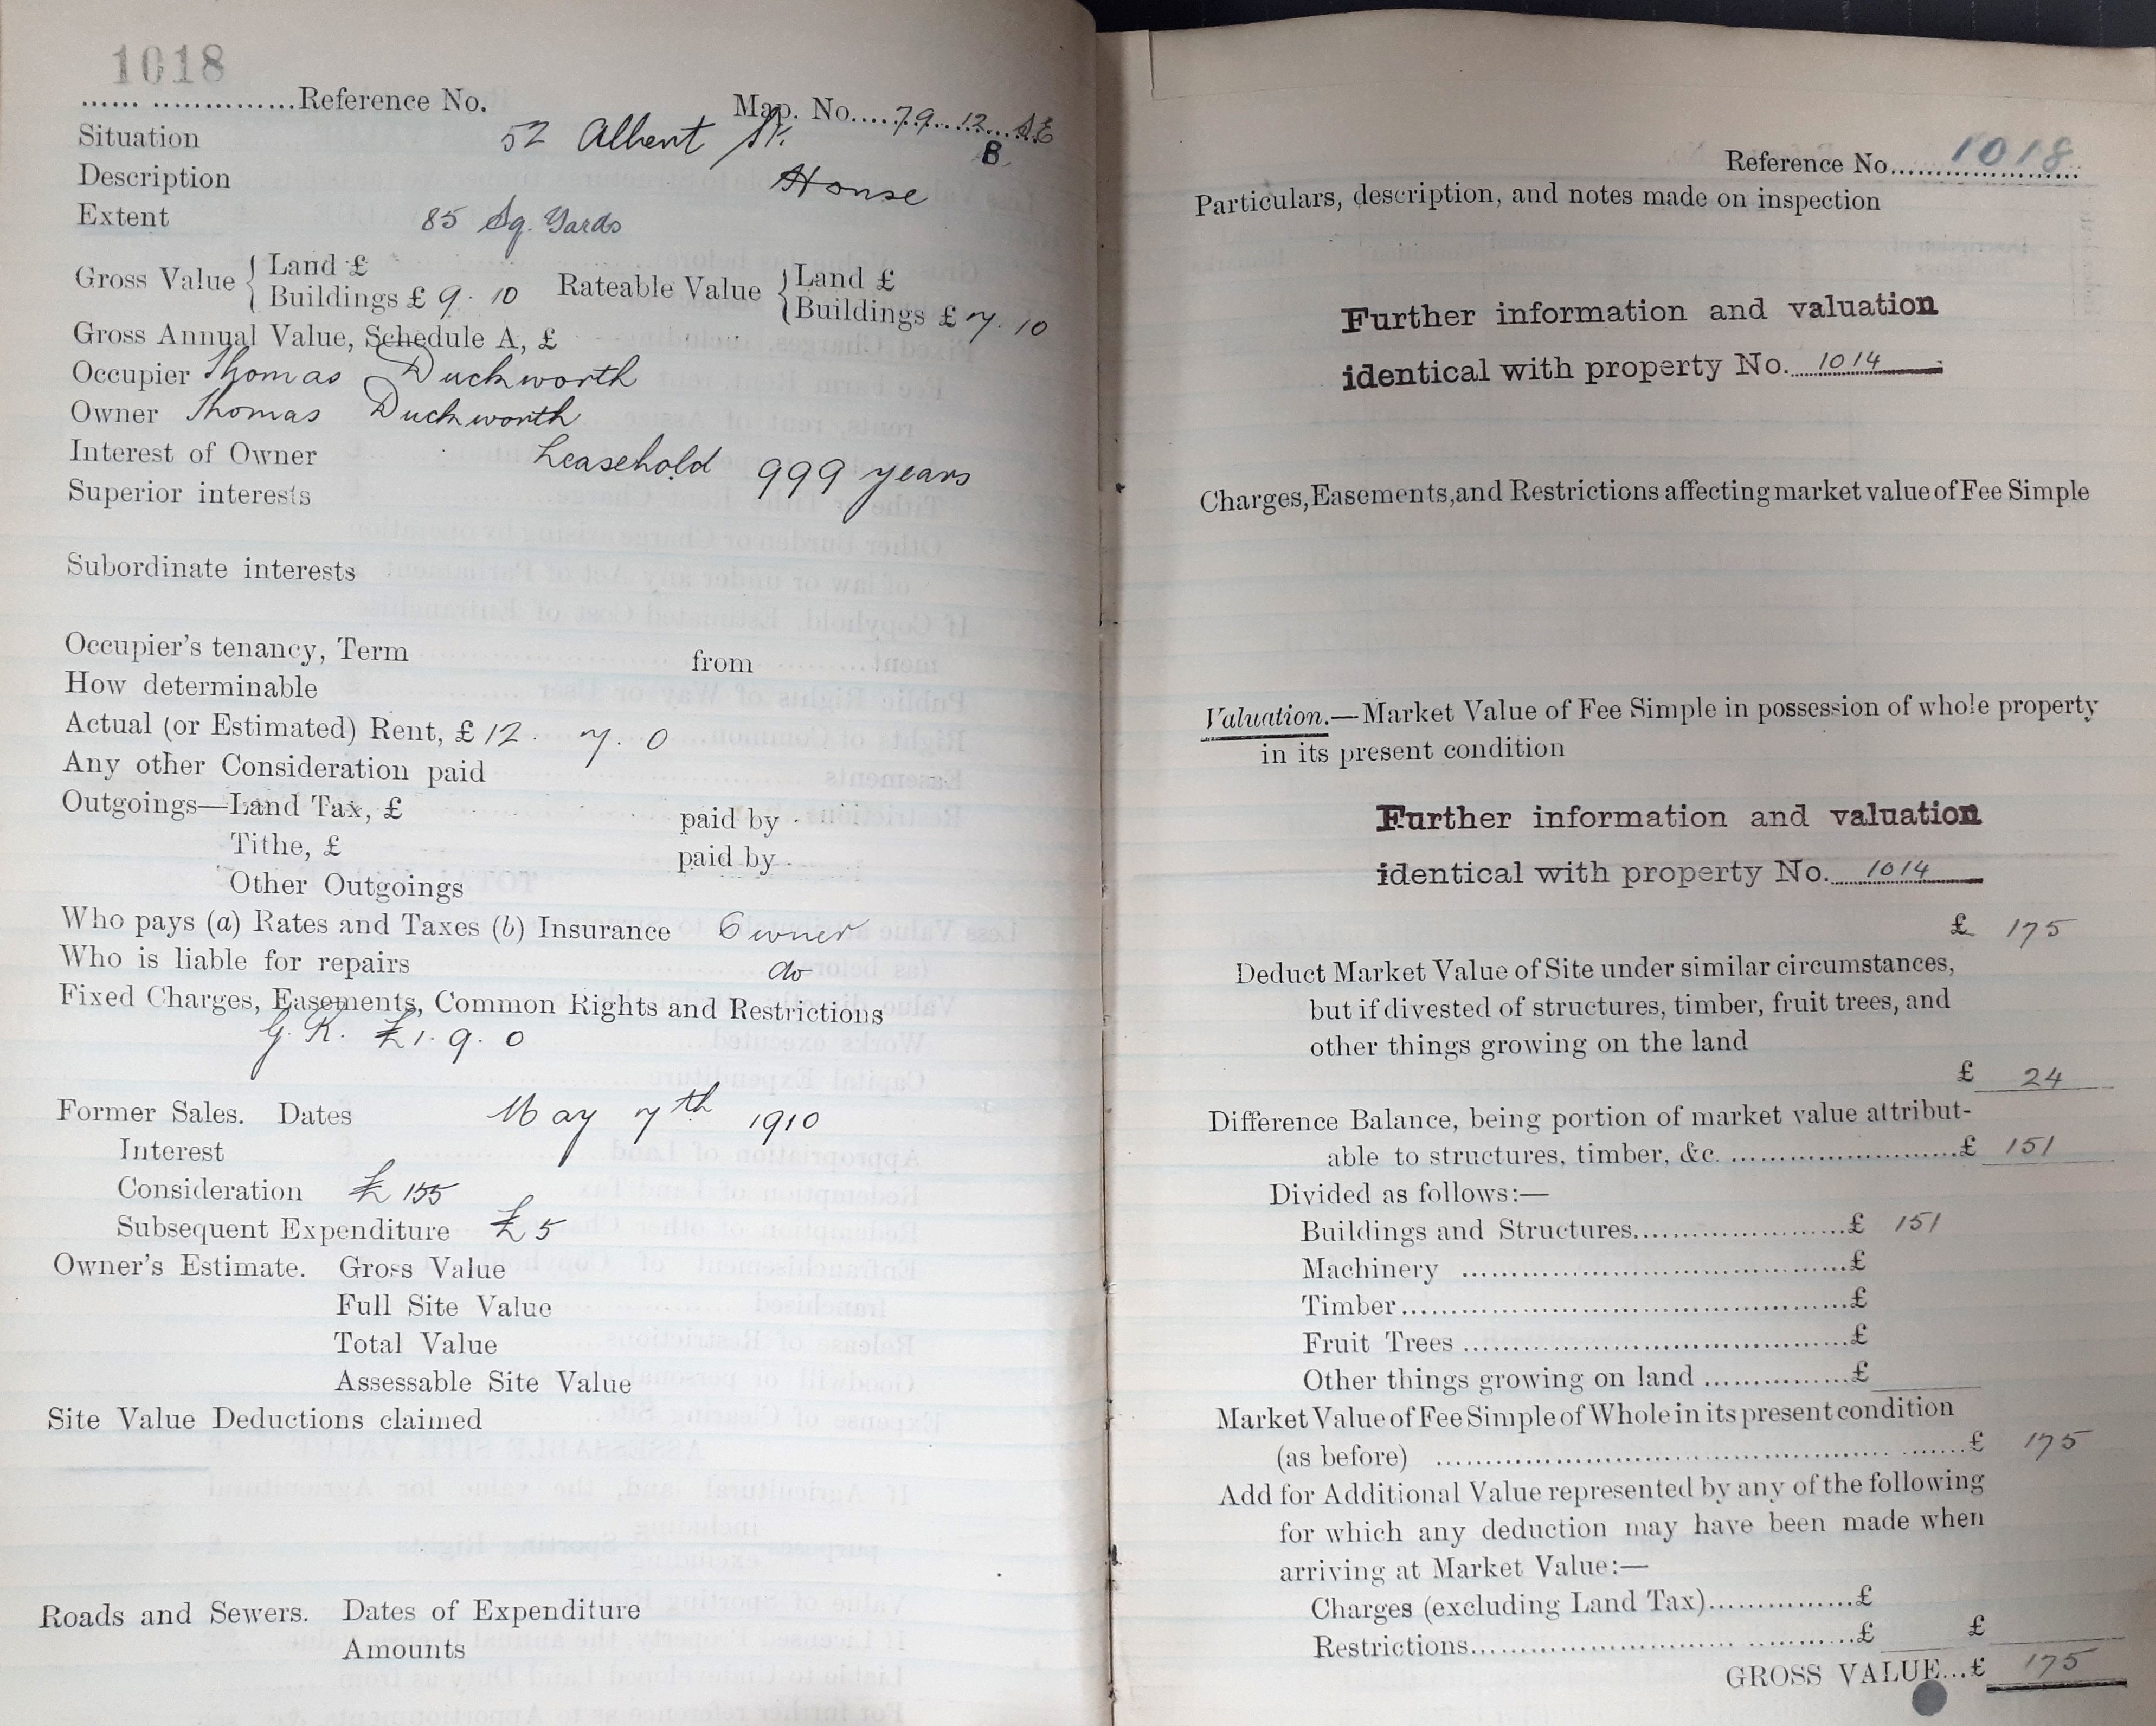 1018
Reference No. Map. No. 79. 12. SE
B.
Situation 52 Albert St.
Description House
Extent 85 Sq. Yards
Gross Value { Land £ Rateable Value { Land £
Buildings £ 9. 10 Buildings £ 7. 10
Gross Annual Value, Schedule A, £
Occupier Thomas Duckworth
Owner Thomas Duckworth
Interest of Owner Leasehold 999 years
Superior interests
Subordinate interests
Occupier's tenancy, Term from
How determinable
Actual (or Estimated) Rent, £ 12. 7. 0
Any other Consideration paid
Outgoings—Land Tax, £ paid by
Tithe, £ paid by
Other Outgoings
Who pays (a) Rates and Taxes (b) Insurance Owner
Who is liable for repairs do
Fixed Charges, Easements, Common Rights and Restrictions
G. R. £1. 9. 0
Former Sales. Dates May 7th 1910
Interest
Consideration £ 155
Subsequent Expenditure £ 5
Owner's Estimate. Gross Value
Full Site Value
Total Value
Assessable Site Value
Site Value Deductions claimed
Roads and Sewers. Dates of Expenditure
Amounts
Reference No. 1018
Particulars, description, and notes made on inspection
Further information and valuation
identical with property No. 1014
Charges, Easements, and Restrictions affecting market value of Fee Simple
Valuation.—Market Value of Fee Simple in possession of whole property
in its present condition
Further information and valuation
identical with property No. 1014
£ 175
Deduct Market Value of Site under similar circumstances,
but if divested of structures, timber, fruit trees, and
other things growing on the land
£ 24
Difference Balance, being portion of market value attribut-
able to structures, timber, &c. £ 151
Divided as follows:—
Buildings and Structures £ 151
Machinery £
Timber £
Fruit Trees £
Other things growing on land £
Market Value of Fee Simple of Whole in its present condition
(as before) £ 175
Add for Additional Value represented by any of the following
for which any deduction may have been made when
arriving at Market Value:—
Charges (excluding Land Tax) £
Restrictions £ £
GROSS VALUE...£ 175